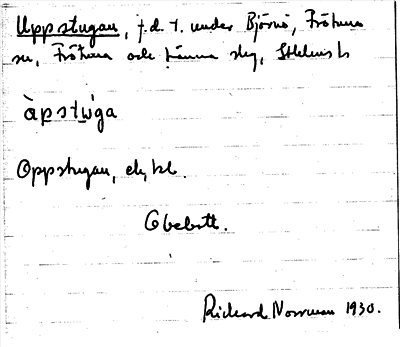 Uppstugan, f.d. t. under Björnö, Frötuna
sn, Frötuna och Länna skg, Sthlms l.
àpstẁga
Oppstugan, ek, bl.
Obebott.
Rickard Norrman 1930.